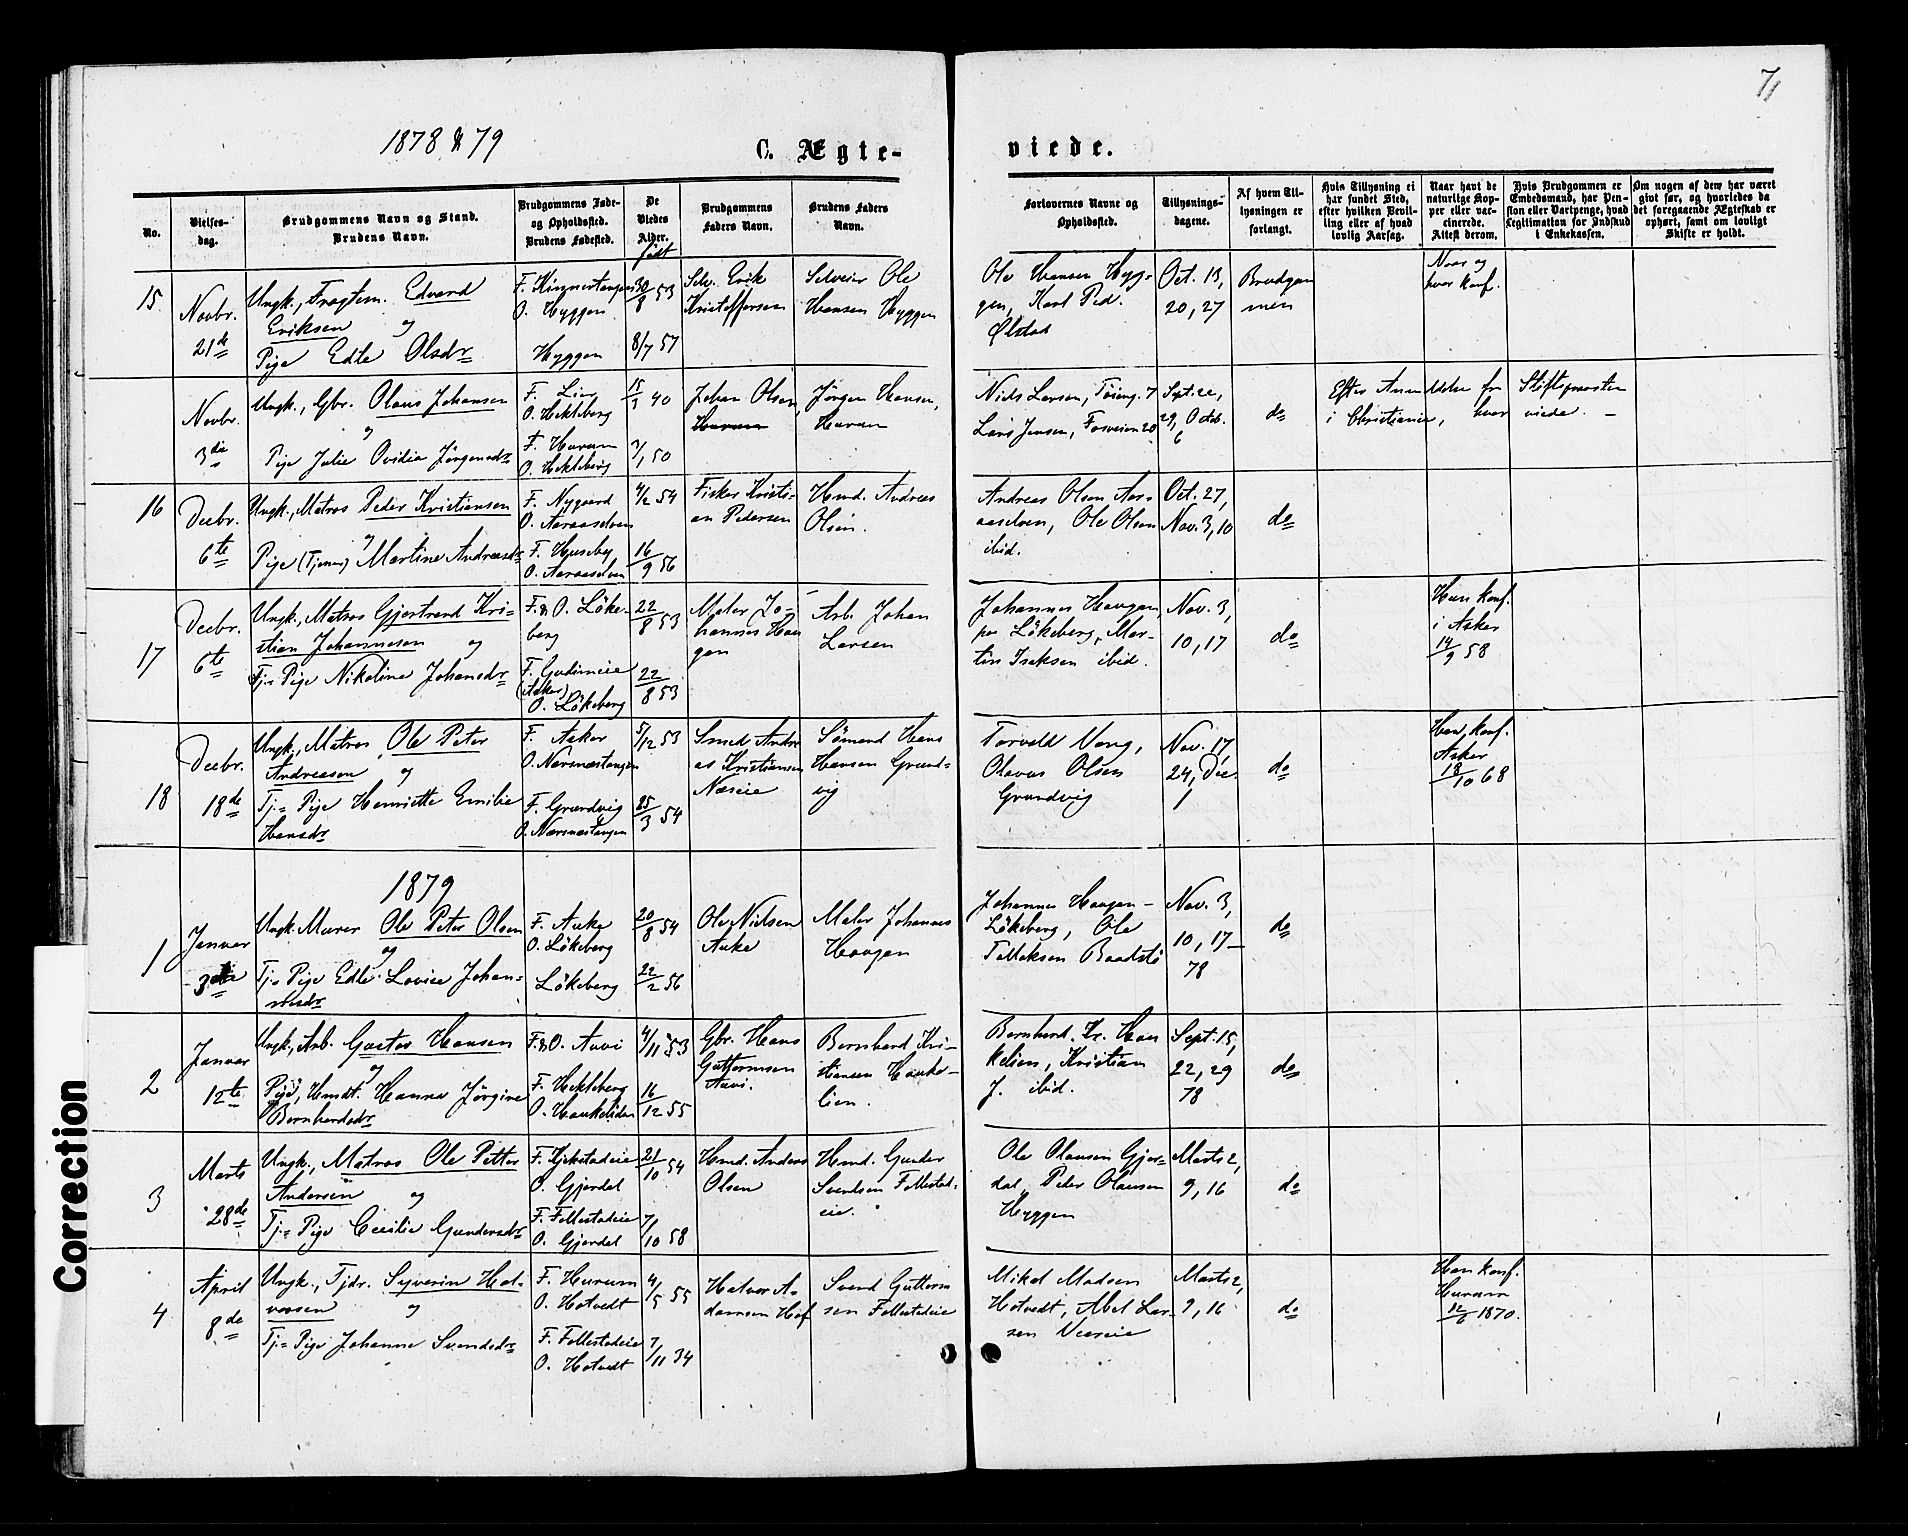 71
1878 & 79
C. Ægte-
viede.
No.
Vielses-
dag.
Brudgommens Navn og Stand.
Brudens Navn.
Brudgommens Føde-
og Opholdssted.
Brudens Fødested.
De
Viedes
Alder.
født
Brudgommens
Faders Navn.
Brudens Faders
Navn.
Forlovernes Navne og
Opholdssted.
Tillysnings-
dagene.
Af hvem Til-
lysningen er
forlangt.
Hvis Tillysning ei
har fundet Sted,
efter hvilken Bevil-
ling eller af hvad
lovlig Aarsag.
Naar havt de
naturlige Kop-
per eller vac-
cinerede.
Attest derom.
Hvis Brudgommen er
Embedsmand, har Pen-
sion eller Vartpenge, hvad
Legitimation for Indskud
i Enkekassen.
Om nogen af dem har været
givt før, og hvorledes da
det foregaaende Ægteskab er
ophørt, samt om lovligt
Skifte er holdt.
15
Novbr.
21de
Ungk., Fragtem. Edvard
Eriksen og
Pige Edle Olsdr
O. Hyggen
Hyggen
30/8 53
8/7 57
Selv. Erik
Kristoffersen
Selveier Ole
Hansen Hyggen
Ole Hansen Hyg-
gen, Karl Ped.
Ølstad
Oct. 13,
20, 27
Brudgom
men
Novbr.
3die
Ungk., Gbr. Olaus Johansen
og
Pige Julie Ovidia Jørgensdr
F. Lier
O. Hekleberg
F. Hurum
O. Hekleberg
40
50
Johan Olsen,
Hurum
Jørgen Hansen,
Hurum
Niels Larsen, Tøieng. 7
Lars Jensen, Fosveien 20
Sept. 22,
29, Octob.
6
do
Efter Anmeldelse fra Stiftsprovsten
i Christiania, hvor viede. -
16
Decbr.
6te
Ungk., Matros Peder Kristiansen
og
Pige (Tjener) Martine Andreasdr
F. Nygaard
O. Aaraaselven
F. Huseby
O. Aaraaselven
4/2 54
16/9 56
Fisker Kristi-
an Pedersen
Hmd. Andreas
Olsen.
Andreas Olsen Aar-
aaselven, Ole Olsen
ibid.
Oct. 27,
Nov. 3, 10
do
17
Decbr.
6te
Ungk., Matros Gjertrand Kri-
stian Johannesen og
Tj.= Pige Nikoline Johansdr
F. & O. Løke-
berg
(Asker)
O. Løkeberg
22/8 53
22/8 53
Maler Jo-
hannes Haa
gen
Arb. Johan
Larsen
Johannes Haagen,
paa Løkeberg, Mar-
tin Isaksen ibid.
Nov. 3,
10, 17
do
Hun konf.
i Asker
14/9 58
18
Decbr.
18de
Ungk., Matros Ole Peter
Andreasen og
Tj.= Pige Henriette Emilie
Hansdr
F. Asker
O. Nærsnæstangen
F. Grundvig
O. Nærsnæstangen
5/12 53
25/3 54
Smed Andre
as Kristiansen
Næseie
Sømand Hans
Hansen Grund-
vig
Torvald Vang,
Olavus Olsen
Grundvig
Nov. 17,
24, Dec.
1
do
Han konf.
Asker
18/10 68
1879
1
Januar
3die
Ungk. Murer Ole Peter Olsen
og
Tj.= Pige Edle Lovise Johan-
nesdr
F. Auke
O. Løkeberg
Løkeberg
20/8 54
22/2 56
Ole Nielsen
Auke
Maler Johannes
Haagen
Johannes Haagen -
Løkeberg, Ole
Tollefsen Baadstø
Nov. 3,
10, 17-
78
do
2
Januar
12te
Ungk., Arb. Gustav Hansen
og
Pige, Hmdt. Hanna Jørgine
Bernhardsdr
F. & O. Auvi
F. Hekleberg
O. Haukelien
4/11 53
16/12 55
Gbr. Hans
Guttormsen
Auvi.
Bernhard Kri-
stiansen Hauke-
lien.
Bernhard. Kr. Hau
kelien, Kristian
J. ibid.
Sept. 15,
22, 29
78
do
3
Marts
28de
Ungk., Matros Ole Petter
Andersen og
Tj.= Pige Cecilie Gundersdr
F. Kjekstadeie
O. Gjerdal
F. Follestadeie
O. Gjerdal
21/10 54
7/10 58
Hmd. Anders
Olsen
Hmd. Gunder
Svendsen Follestad-
eie.
Ole Olausen Gjer-
dal, Peder Olausen
Hyggen
Marts 2,
9, 16
do
4
April
8de
Ungk., Tjdr. Syverin Hal-
vorsen og
Tj.= Pige Johanne Svendsdr
F. Hurum
O. Hotvedt
F. Follestadeie
O. Hotvedt
4/5 55
7/11 34
Halvor A-
damsen Hof
Svend Guttorm
sen Follestadeie
Mikal Madsen
Hotvedt, Abel Lar-
sen
Marts 2,
9, 16
do
Han konf.
Hurum
12/6 1870.
Correction